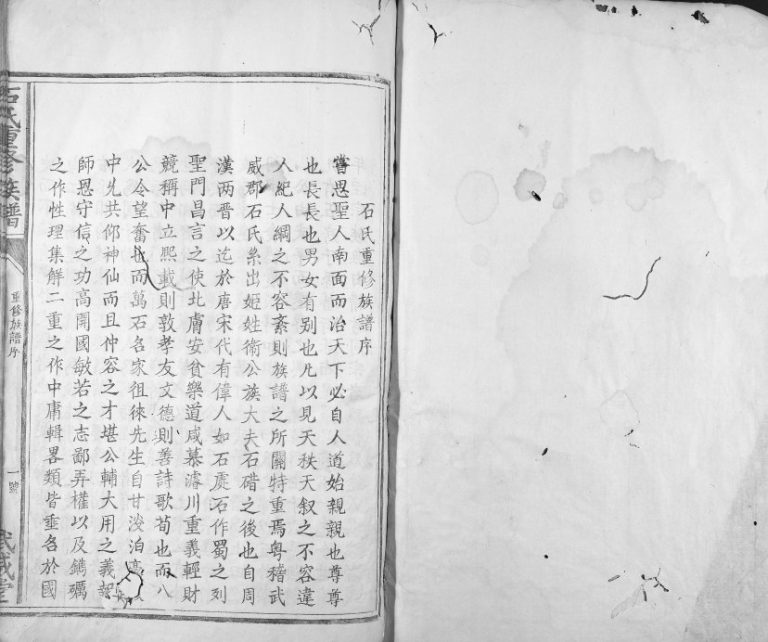 石氏重修族譜序
嘗思聖人南面而治天下必自人道始親親也尊尊
也長長也男女有别也凡以見天秩天叙之不容違
人紀人綱之不容紊則族譜之所關特重焉粤稽武
威郡石氏系出姬姓衛公族大夫石碏之後也自周
漢两晋以迄於唐宋代有偉人如石處石作蜀之列
聖門昌言之使北膚安貧樂道咸慕濬川重義輕財
競稱中立熙載則敦孝友文德則善詩歌荀也而八
公令望奮也而萬石名家徂徠先生自甘淡泊
中允共仰神仙而且仲容之才堪公輔大用之義報
師恩守信之功高開國敏若之志鄙弄權以及鐫礪
之作性理集解二重之作中庸輯畧類皆垂名於國
石氏重修族譜
重修族譜序
一號
武威堂